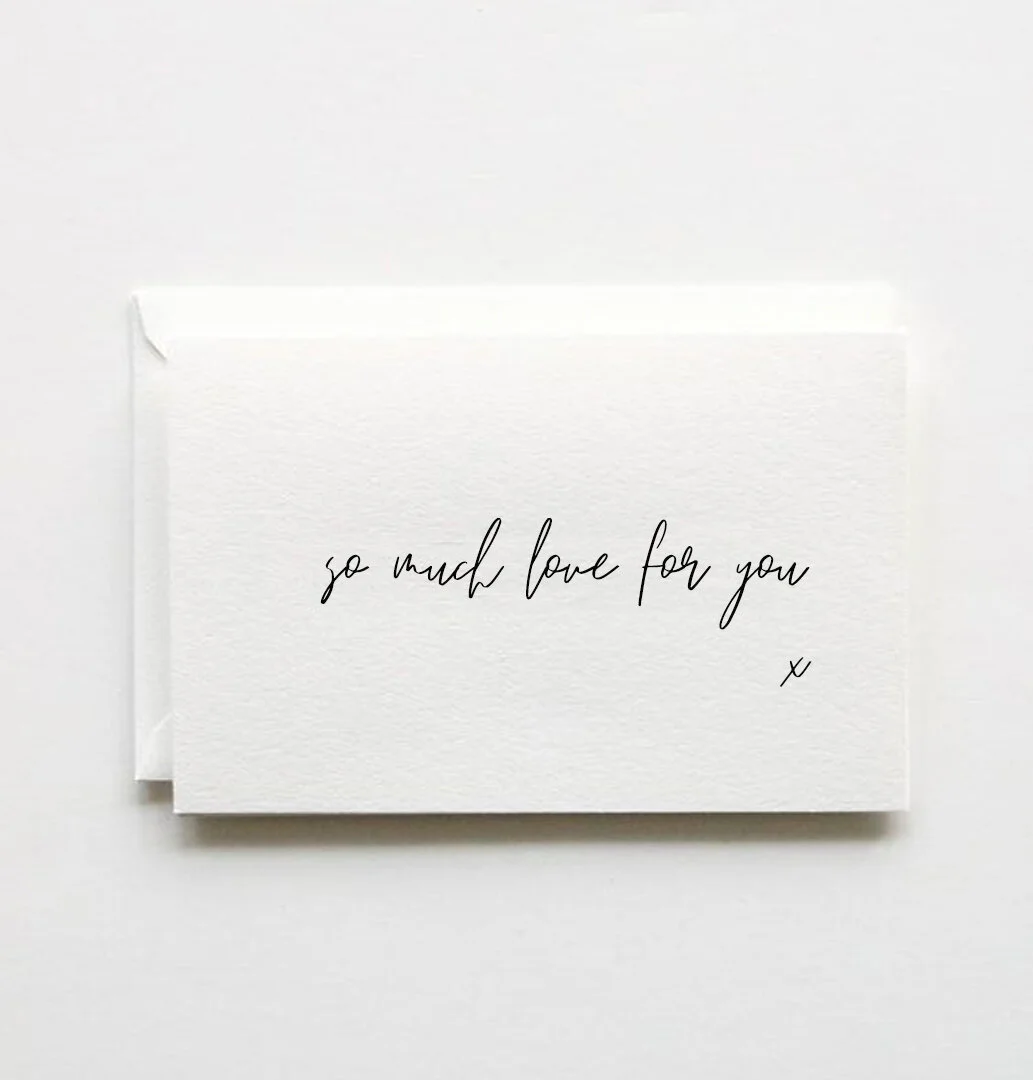 so much love for you
x